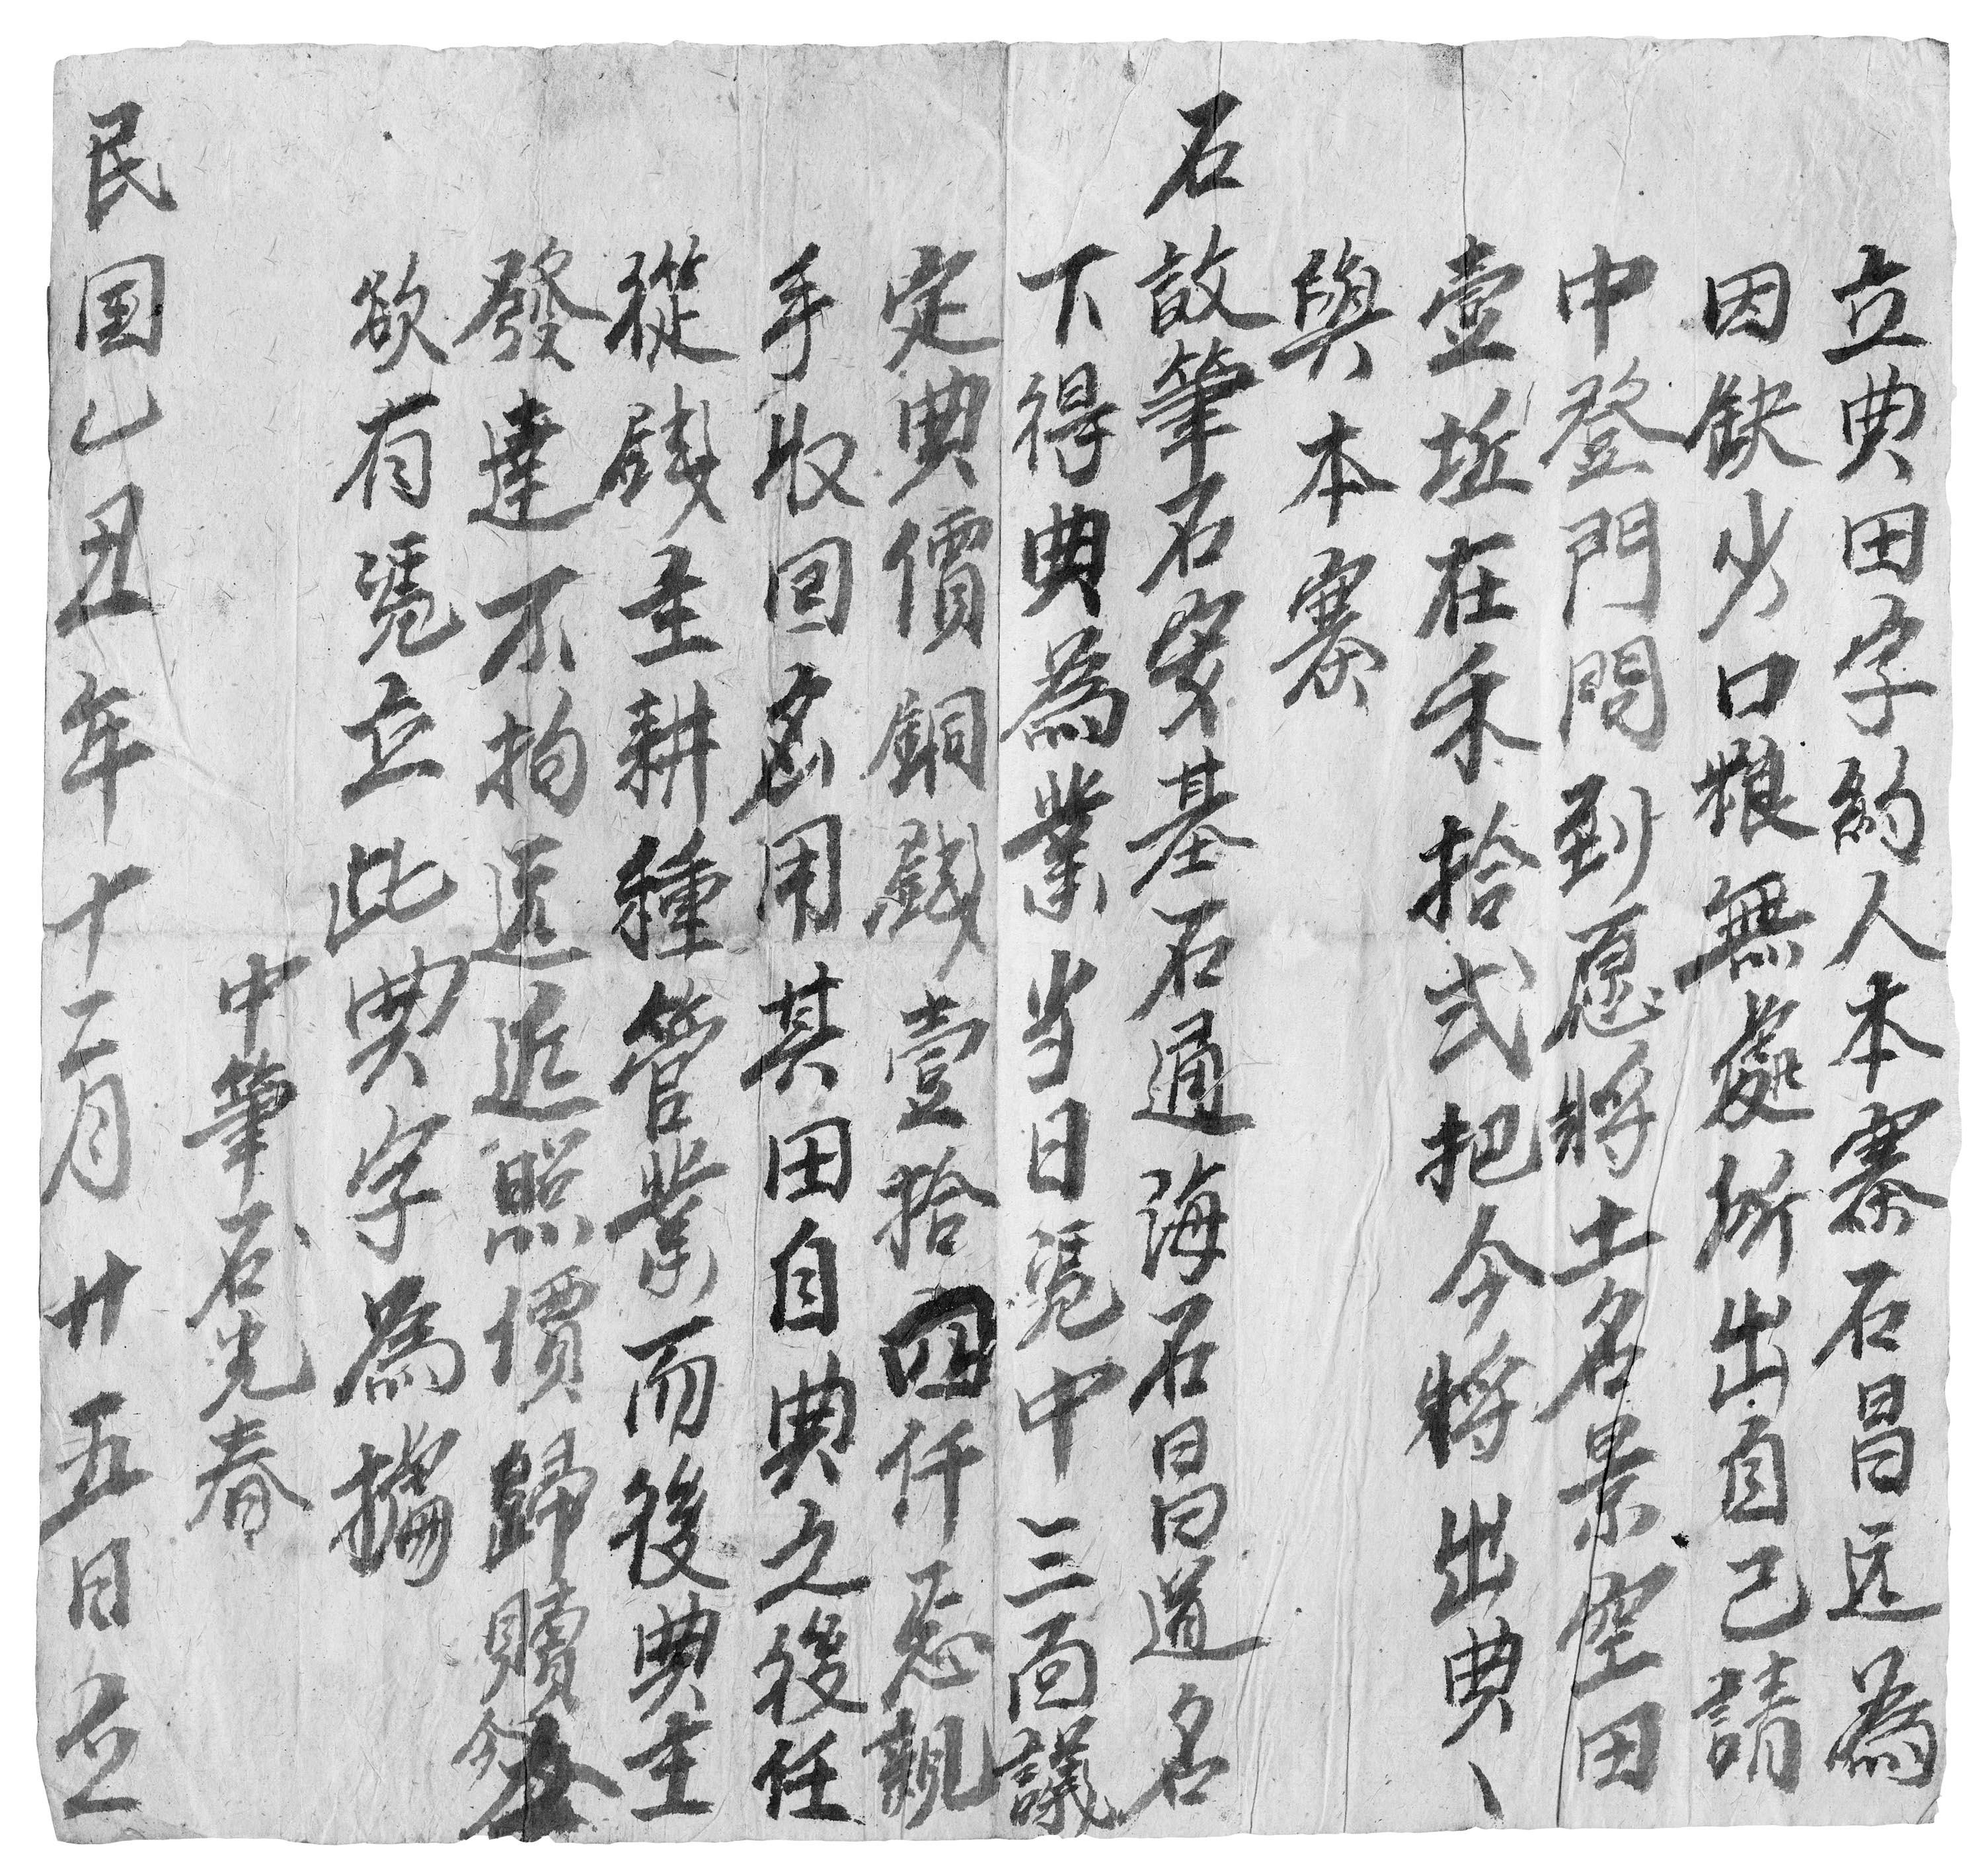 立典田字約人本寨石昌远為
因缺少口粮無處所出自己請
中登門問到愿將土名景空田
壹坵在禾拾弍把今將出典丶
與本寨
石啟筆石安基石通海石昌道名
下得典為業当日凭中三面議
定典價銅錢壹拾四仟忩親
手收回用其田自典之後任
從錢主耕種管業而後典主
發達不拘遠近照價歸贖今
欲有凭立此典字為據
中筆石光春
民国乙丑年十二月廿五日立